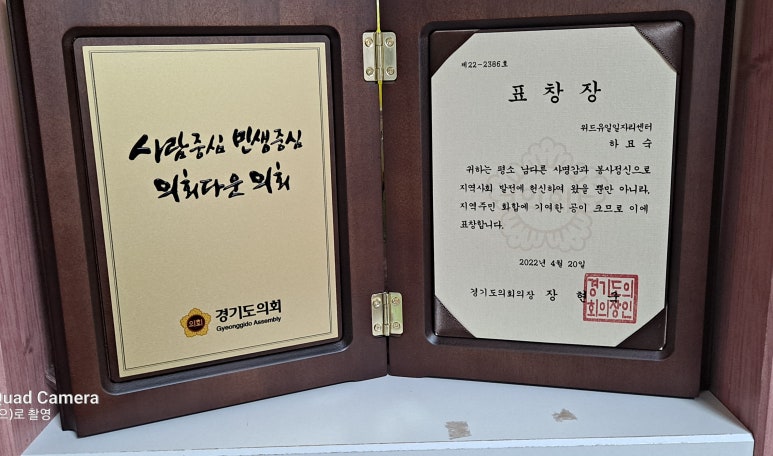 사람중심 민생중심
의회다운 의회
의회
경기도의회
Gyeonggido Assembly
제22-2386호
표 창 장
위드유일일자리센터
하 묘 숙
귀하는 평소 남다른 사명감과 봉사정신으로
지역사회 발전에 헌신하여 왔을 뿐만 아니라,
지역주민 화합에 기여한 공이 크므로 이에
표창합니다.
2022년 4월 20일
경기도의회의장 장 현
경기도의
회의장인
Quad Camera
으)로 촬영